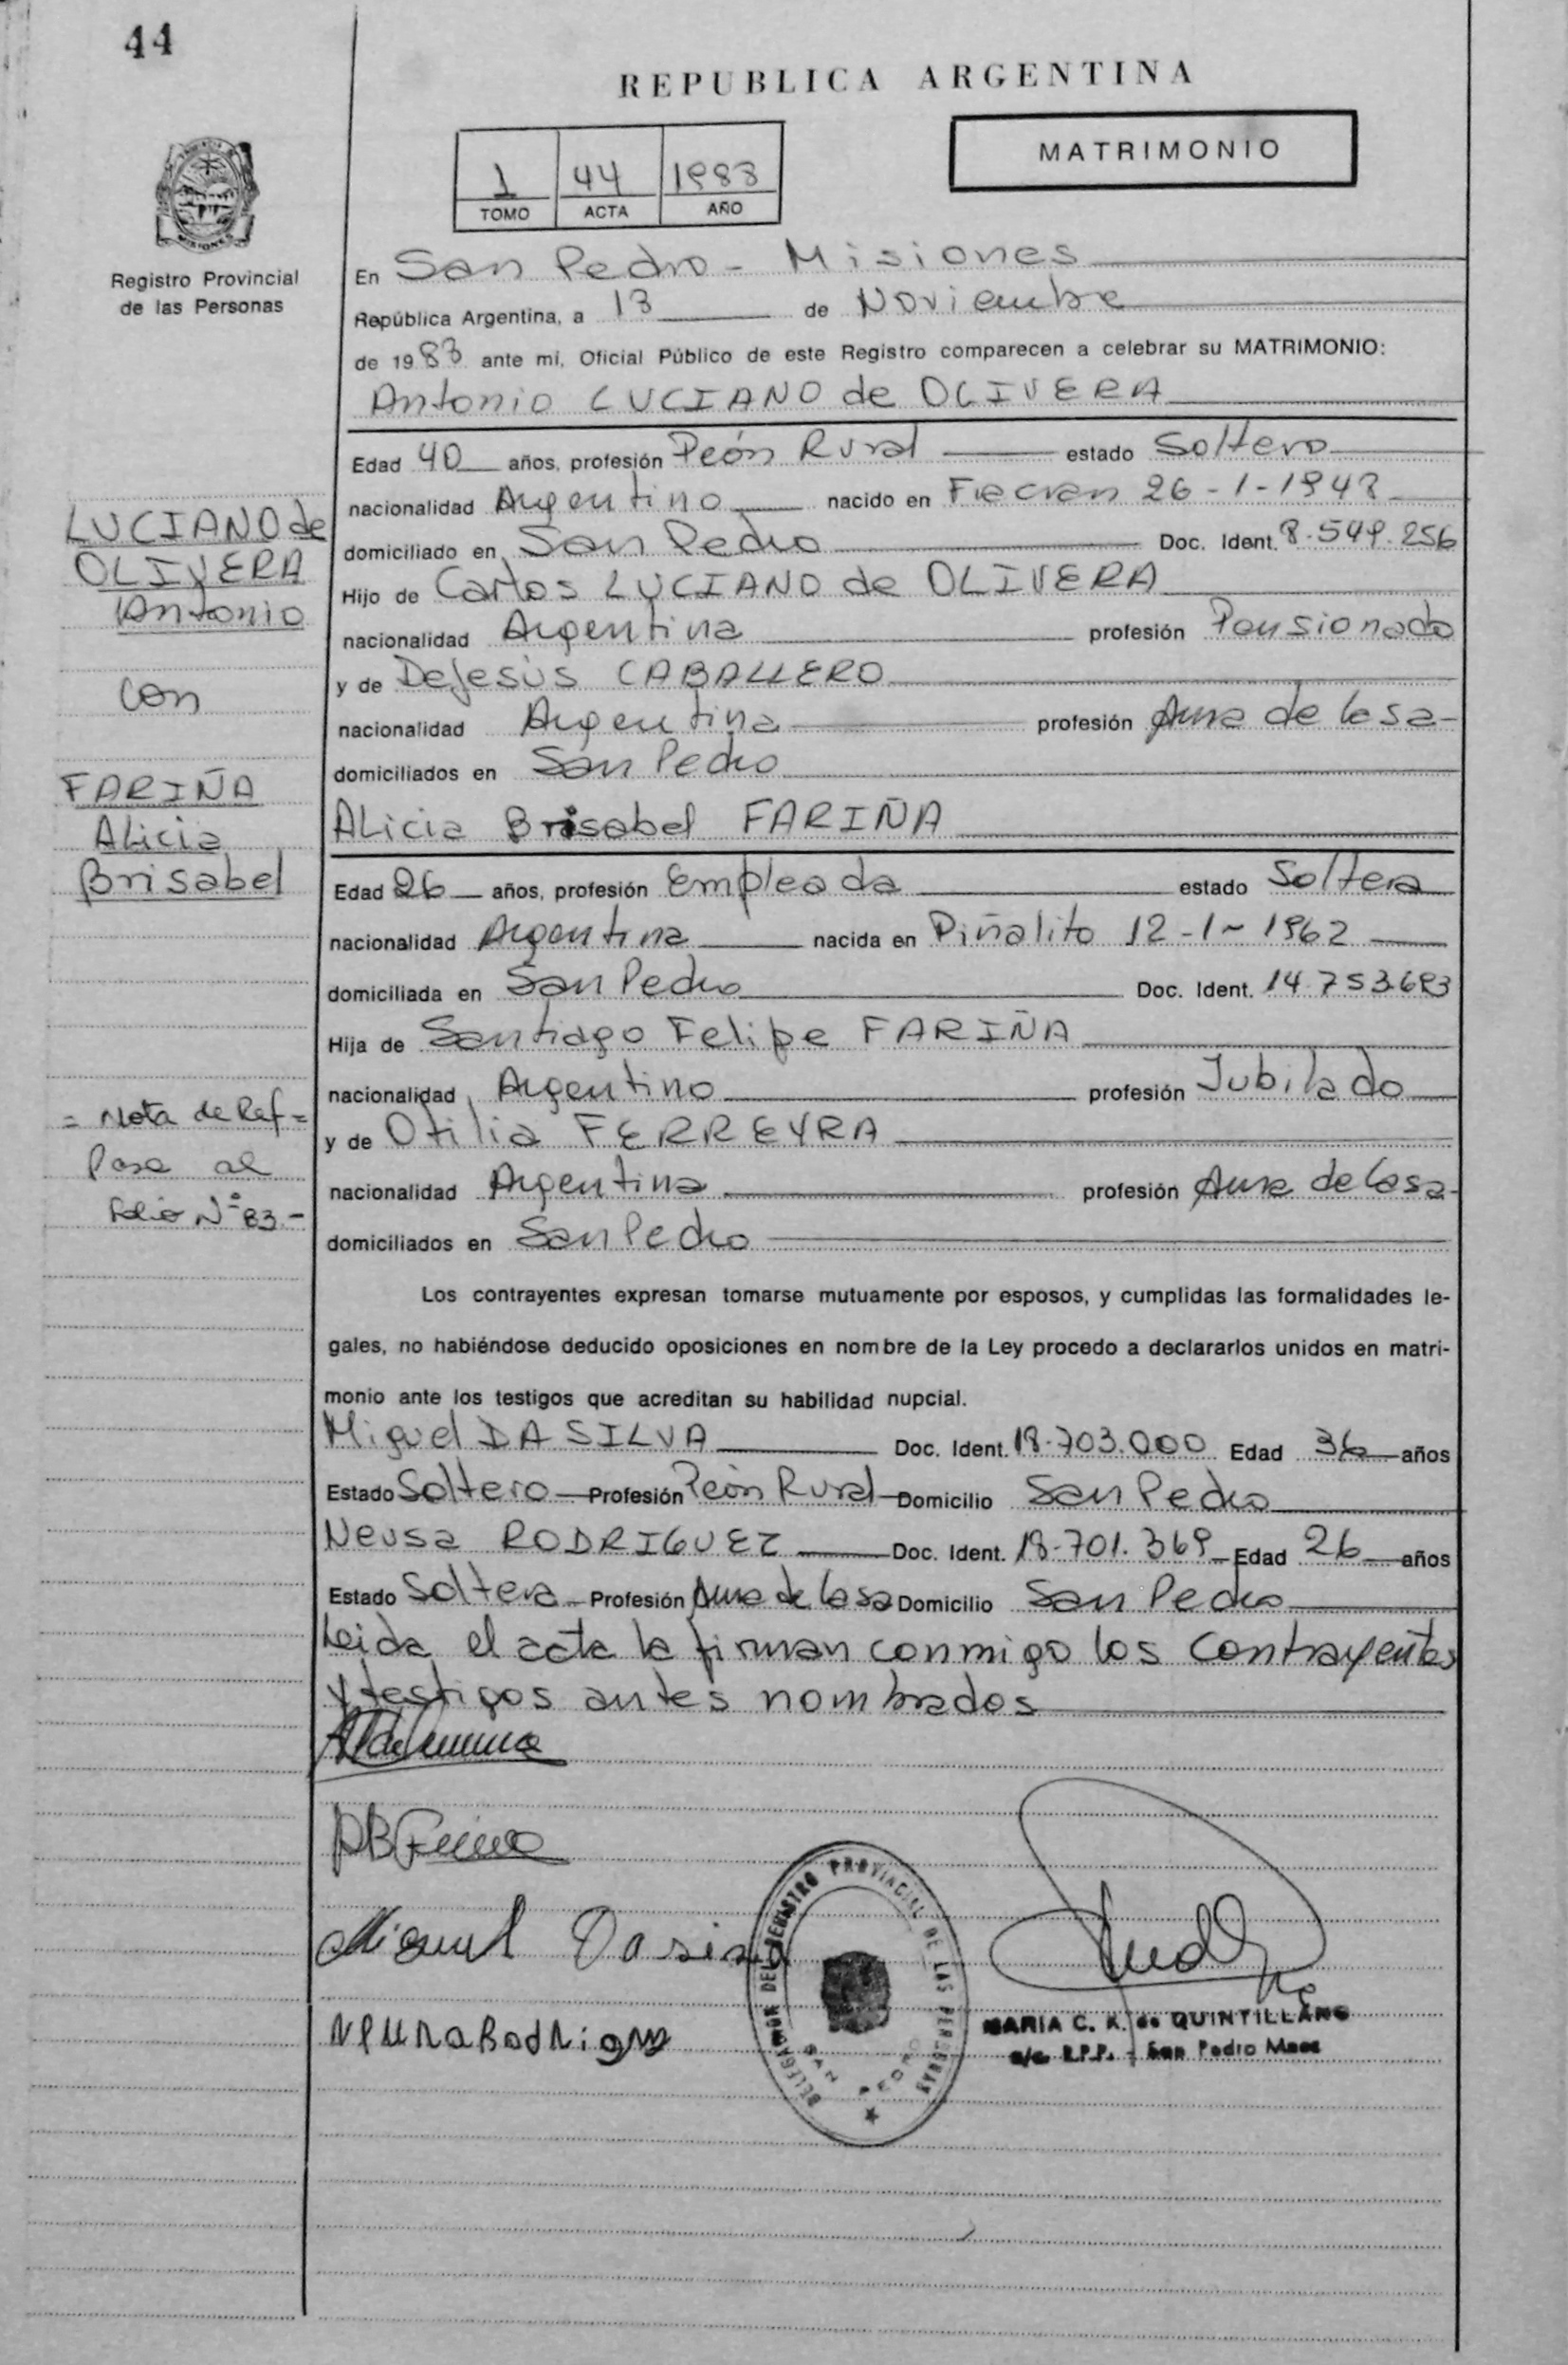 44
REPUBLICA ARGENTINA
MATRIMONIO
1 44 1983
TOMO ACTA AÑO
MISIONES
Registro Provincial
de las Personas
En San Pedro - Misiones
República Argentina, a 13 de Noviembre
de 1983 ante mí, Oficial Público de este Registro comparecen a celebrar su MATRIMONIO:
Antonio LUCIANO de OLIVERA
Edad 40 años, profesión Peón Rural estado Soltero
nacionalidad Argentino nacido en Fracran 26-1-1943
domiciliado en San Pedro Doc. Ident. 8.549.256
Hijo de Carlos LUCIANO de OLIVERA
nacionalidad Argentina profesión Pensionado
y de DeJesús CABALLERO
nacionalidad Argentina profesión Ama de Casa-
domiciliados en San Pedro
LUCIANO de
OLIVERA
Antonio
con
FARIÑA
Alicia
Brisabel
Alicia Brisabel FARIÑA
Edad 26 años, profesión Empleada estado Soltera
nacionalidad Argentina nacida en Piñalito 12-1-1962
domiciliada en San Pedro Doc. Ident. 14.753.693
Hija de Santiago Felipe FARIÑA
nacionalidad Argentino profesión Jubilado
y de Otilia FERREYRA
nacionalidad Argentina profesión Ama de Casa-
domiciliados en San Pedro
= Nota de Ref =
Pasa al
Folio Nº 83 -
Los contrayentes expresan tomarse mutuamente por esposos, y cumplidas las formalidades le-
gales, no habiéndose deducido oposiciones en nombre de la Ley procedo a declararlos unidos en matri-
monio ante los testigos que acreditan su habilidad nupcial.
Miguel DA SILVA Doc. Ident. 18.703.000 Edad 36 años
Estado Soltero Profesión Peón Rural Domicilio San Pedro
Neusa RODRIGUEZ Doc. Ident. 18.701.369 Edad 26 años
Estado Soltera Profesión Ama de Casa Domicilio San Pedro
Leida el acta la firman conmigo los contrayentes
y testigos antes nombrados
Miguel Dasilva
DELEGACION DEL REGISTRO PROVINCIAL DE LAS PERSONAS
SAN PEDRO
MARIA C. K. de QUINTILLANO
a/c R.P.P. - San Pedro Mnes